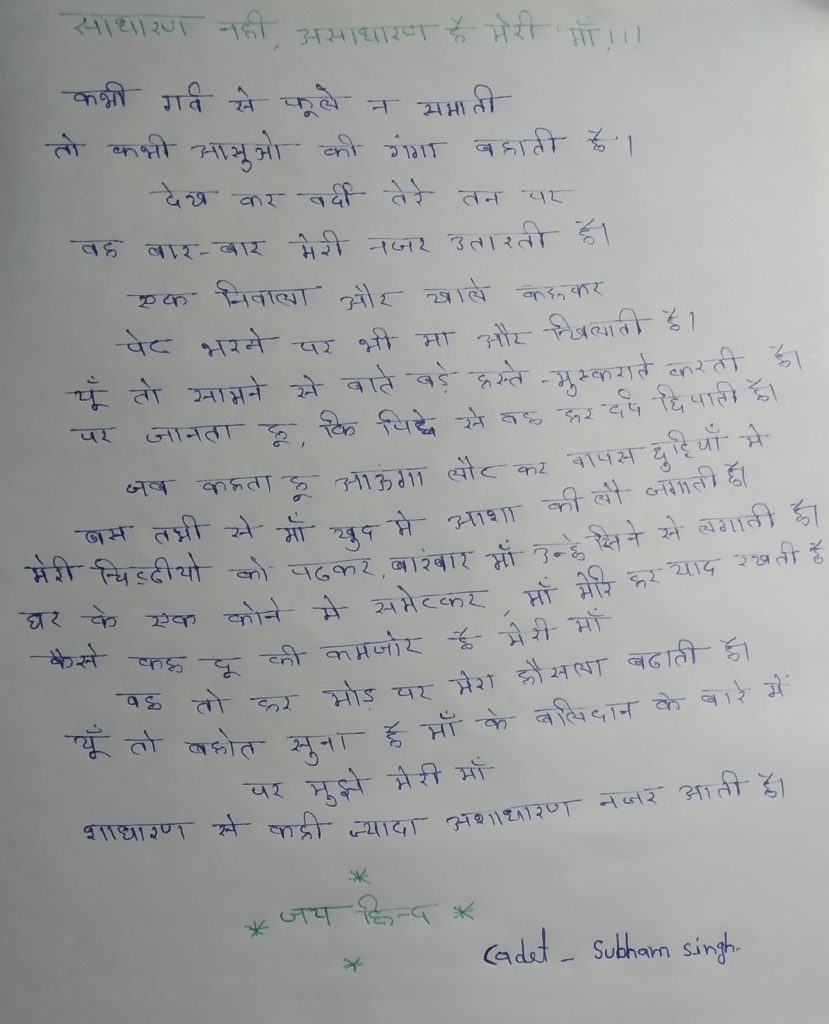 साधारण नही, असाधारण है मेरी माँ!!!
कभी गर्व से फूले न समाती
तो कभी आसुओ की गंगा बहाती है।
देख कर वर्दी तेरे तन पर
वह बार-बार मेरी नजर उतारती है।
एक निवाला और खाले कहकर
पेट भरने पर भी मा और खिलाती है।
यूँ तो सामने से बाते बड़े हस्ते-मुस्कराते करती है।
पर जानता हू, कि पिछे से वह हर दर्द छिपाती है।
जब कहता हू आऊंगा लौट कर वापस छुट्टियाँ मे
बस तभी से माँ खुद मे आशा की लौ जगाती है।
मेरी चिड्ढीयो को पढकर, बारंबार माँ उन्हे सिने से लगाती है।
घर के एक कोने मे समेटकर, माँ मेरि हर याद रखती है
कैसे कह दू की कमजोर है मेरी माँ
वह तो हर मोड़ पर मेरा हौसला बढाती है।
यूँ तो बहोत सुना है माँ के बलिदान के बारे मैं
पर मुझे मेरी माँ
शाधारण से कही ज्यादा अशाधारण नजर आती है।
*
* जय हिन्द *
*
Cadet - Subham singh.